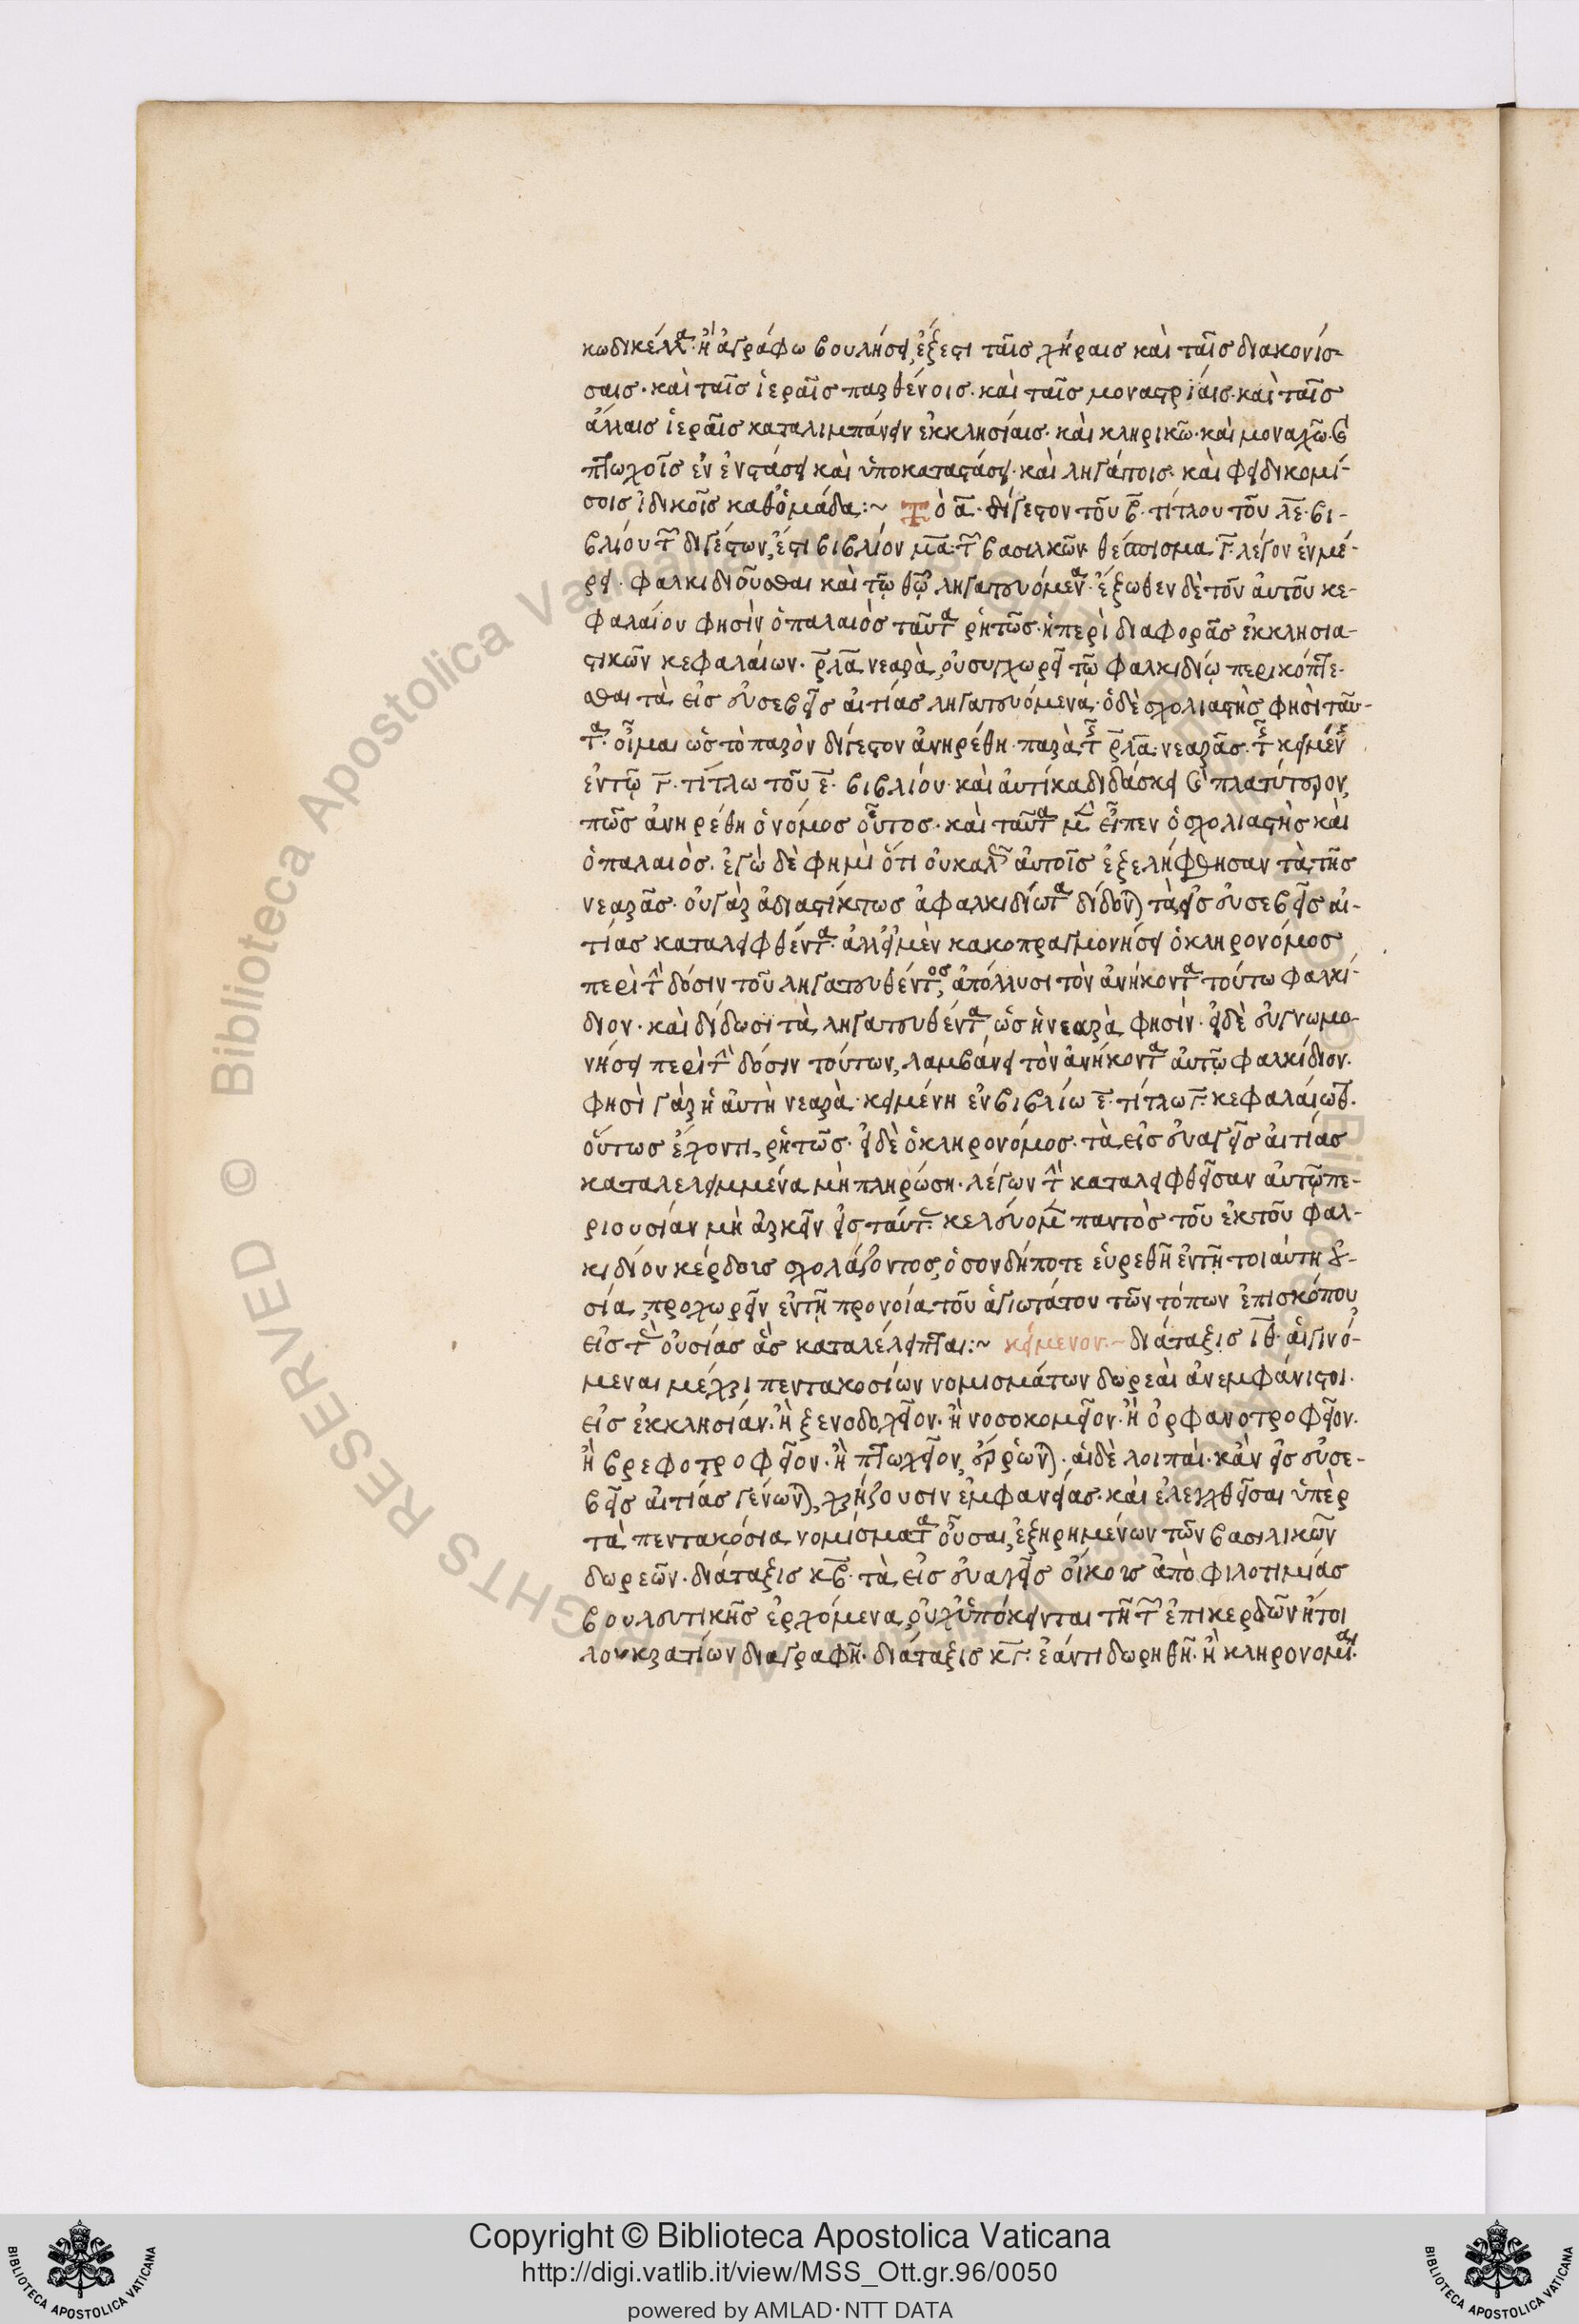 κωδικέλλα· ἢ ἀγράφω βουλήσει, ἔξεστι ταῖς χήραις καὶ ταῖς διακονίσ-
σαις· καὶ ταῖς ἱεραῖς παρθένοις· καὶ ταῖς μοναστρίαις· καὶ ταῖς
ἄλλαις ἱεραῖς καταλιμπάνειν ἐκκλησίαις· καὶ κληρικῶ· καὶ μοναχῶ· καὶ
πτωχοῖς ἐν ἐνστάσει καὶ ὑποκαταστάσει· καὶ ληγάτοις· καὶ φειδικομί-
σοις ἰδικοῖς καθ' ὁμάδα:~ Τὸ α̅· δίγεστον τοῦ β̅· τίτλου τοῦ λε̅· βι-
βλίου τῶν διγέστων, ἔστι βιβλίον μα̅· τῶν βασιλικῶν θέμα γ̅· λέγον ἐν μέ-
ρει· φαλκιδιοῦσθαι καὶ τῶ θῶ ληγατευόμενα· ἔξωθεν δὲ τοῦ αὐτοῦ κε-
φαλαίου φησὶν ὁ παλαιὸς ταῦτα ῥητῶς· ἡ περὶ διαφορᾶς ἐκκλησια-
στικῶν κεφαλαίων· ρλα̅ νεαρὰ, οὐ συγχωρεῖ τῶ φαλκιδίῳ περικόπτε-
σθαι τὰ εἰς εὐσεβεῖς αἰτίας ληγατευόμενα· ὁ δὲ σχολιαστὴς φησὶ ταῦ-
τα· οἶμαι ὡς τὸ παρὸν δίγεστον ἀνηρέθη· παρὰ τῆς ρλα̅· νεαρᾶς· τῆς κειμένης
ἐν τῶ γ̅· τίτλω τοῦ ε̅· βιβλίου· καὶ αὐτίκα διδάσκει καὶ πλατύτερον,
πῶς ἀνηρέθη ὁ νόμος οὗτος· καὶ ταῦτα μὲν εἶπεν ὁ σχολιαστὴς καὶ
ὁ παλαιός· ἐγὼ δὲ φημὶ ὅτι οὐ καλῶς αὐτοῖς ἐξελήφθησαν τὰ τῆς
νεαρᾶς· οὐ γὰρ ἀδιαστίκτως ἀφαλκιδίωτα δίδονται τὰ εἰς εὐσεβεῖς αἰ-
τίας καταλειφθέντα· ἀλλ' εἰ μὲν κακοπραγμονήσει ὁ κληρονόμος
περὶ τὴν δόσιν τοῦ ληγατευθέντος, ἀπόλλυσι τὸν ἀνήκοντα τούτω φαλκί-
διον· καὶ δίδωσι τὰ ληγατευθέντα, ὡς ἡ νεαρὰ φησίν· εἰ δὲ εὐγνωμο-
νήσει περὶ τὴν δόσιν τούτων, λαμβάνει τὸν ἀνήκοντα αὐτῶ φαλκίδιον.
φησὶ γὰρ ἡ αὐτὴ νεαρὰ· κειμένη ἐν βιβλίω ε̅· τίτλω γ̅· κεφαλαίω
οὕτως ἔχοντι, ῥητῶς· εἰ δὲ ὁ κληρονόμος· τὰ εἰς εὐαγεῖς αἰτίας
καταλελειμμένα μὴ πληρώση· λέγων τὴν καταλειφθεῖσαν αὐτῶ πε-
ριουσίαν μὴ ἀρκεῖν εἰς ταύτας· κελεύομεν παντὸς τοῦ ἐκ τοῦ φαλ-
κιδίου κέρδους σχολάζοντος, ὅσον δήποτε εὑρεθῆ ἐν τῆ τοιαύτη οὐ-
σία, προχωρεῖν ἐν τῆ προνοία τοῦ ἁγιωτάτου τῶν τόπων ἐπισκόπου
εἰς τὰς οὐσίας ἃς καταλέλειπται:~ κείμενον·~ διάταξις ιθ̅· αἱ γινό-
μεναι μέχρι πεντακοσίων νομισμάτων δωρεαὶ ἀνεμφάνιστοι·
εἰς ἐκκλησίαν· ἢ ξενοδοχεῖον· ἢ νοσοκομεῖον· ἢ ὀρφανοτροφεῖον·
ἢ βρεφοτροφεῖον· ἢ πτωχεῖον, ἔρρωνται· αἱ δὲ λοιπαὶ· κἂν εἰς εὐσε-
βεῖς αἰτίας γένωνται, χρήζουσιν ἐμφανείας· καὶ ἐλεγχθεῖσαι ὑπὲρ
τὰ πεντακόσια νομίσματα οὖσαι, ἐξηρημένων τῶν βασιλικῶν
δωρεῶν· διάταξις κβ̅· τὰ εἰς εὐαγεῖς οἴκους ἀπὸ φιλοτιμίας
βουλευτικῆς ἐρχόμενα, οὐχ ὑπόκεινται τῆ τῶν ἐπικερδῶν ἤτοι
λουκρατίων διαγραφῆ· διάταξις κγ̅· ἐάν τι δωρηθῆ· ἢ κληρονομία·
Copyright © Biblioteca Apostolica Vaticana
http://digi.vatlib.it/view/MSS_Ott.gr.96/0050
powered by AMLAD·NTT DATA